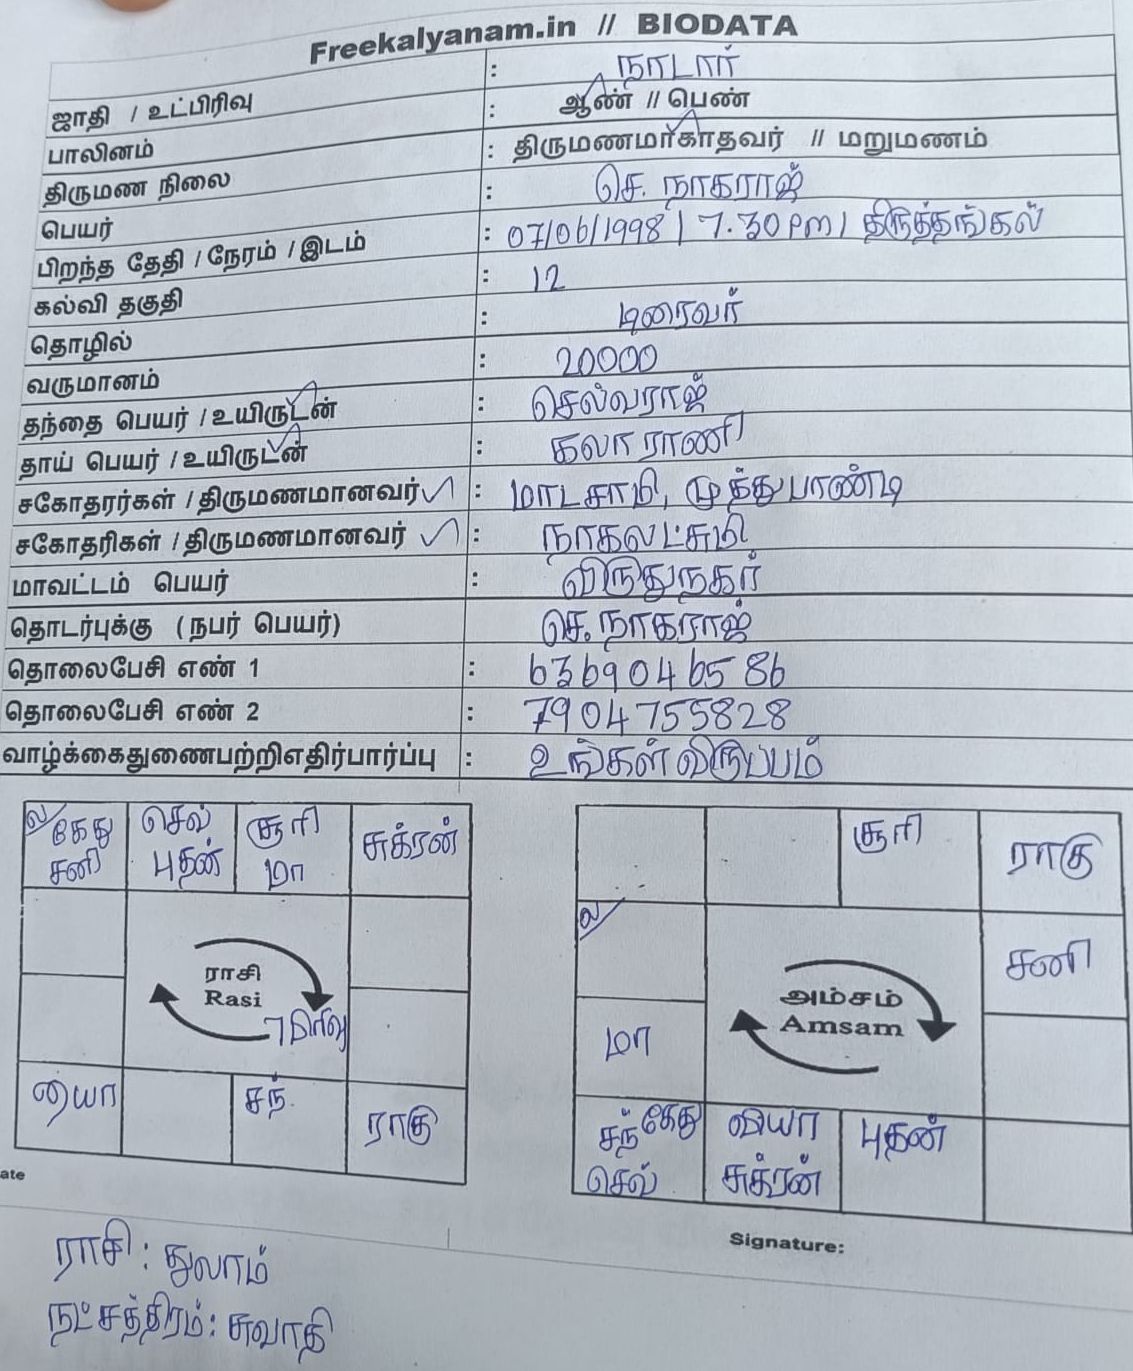 Freekalyanam.in // BIODATA
ஜாதி / உட்பிரிவு : நாடார்
பாலினம் : ஆண் // பெண்
திருமண நிலை : திருமணமாகாதவர் // மறுமணம்
பெயர் : செ. நாகராஜ்
பிறந்த தேதி / நேரம் / இடம் : 07/06/1998 | 7.30 pm / திருத்தங்கல்
கல்வி தகுதி : 12
தொழில் : டிரைவர்
வருமானம் : 20000
தந்தை பெயர் / உயிருடன் : செல்வராஜ்
தாய் பெயர் / உயிருடன் : கலா ராணி
சகோதரர்கள் / திருமணமானவர் : மாடசாமி, முத்துபாண்டி
சகோதரிகள் / திருமணமானவர் : நாகலட்சுமி
மாவட்டம் பெயர் : விருதுநகர்
தொடர்புக்கு (நபர் பெயர்) செ. நாகராஜ்
தொலைபேசி எண் 1 : 6369046586
தொலைபேசி எண் 2 : 7904755828
வாழ்க்கைதுணைபற்றிஎதிர்பார்ப்பு : உங்கள் விருப்பம்
ல/ கேது செவ் சூரி சுக்ரன்
சனி புதன் மா
ராசி
Rasi
வியா சந். ராகு
சூரி ராகு
ல/ சனி
அம்சம்
Amsam
மா
சந் கேது வியா புதன்
செவ் சுக்ரன்
ate
Signature:
ராசி : துலாம்
நட்சத்திரம் : சுவாதி